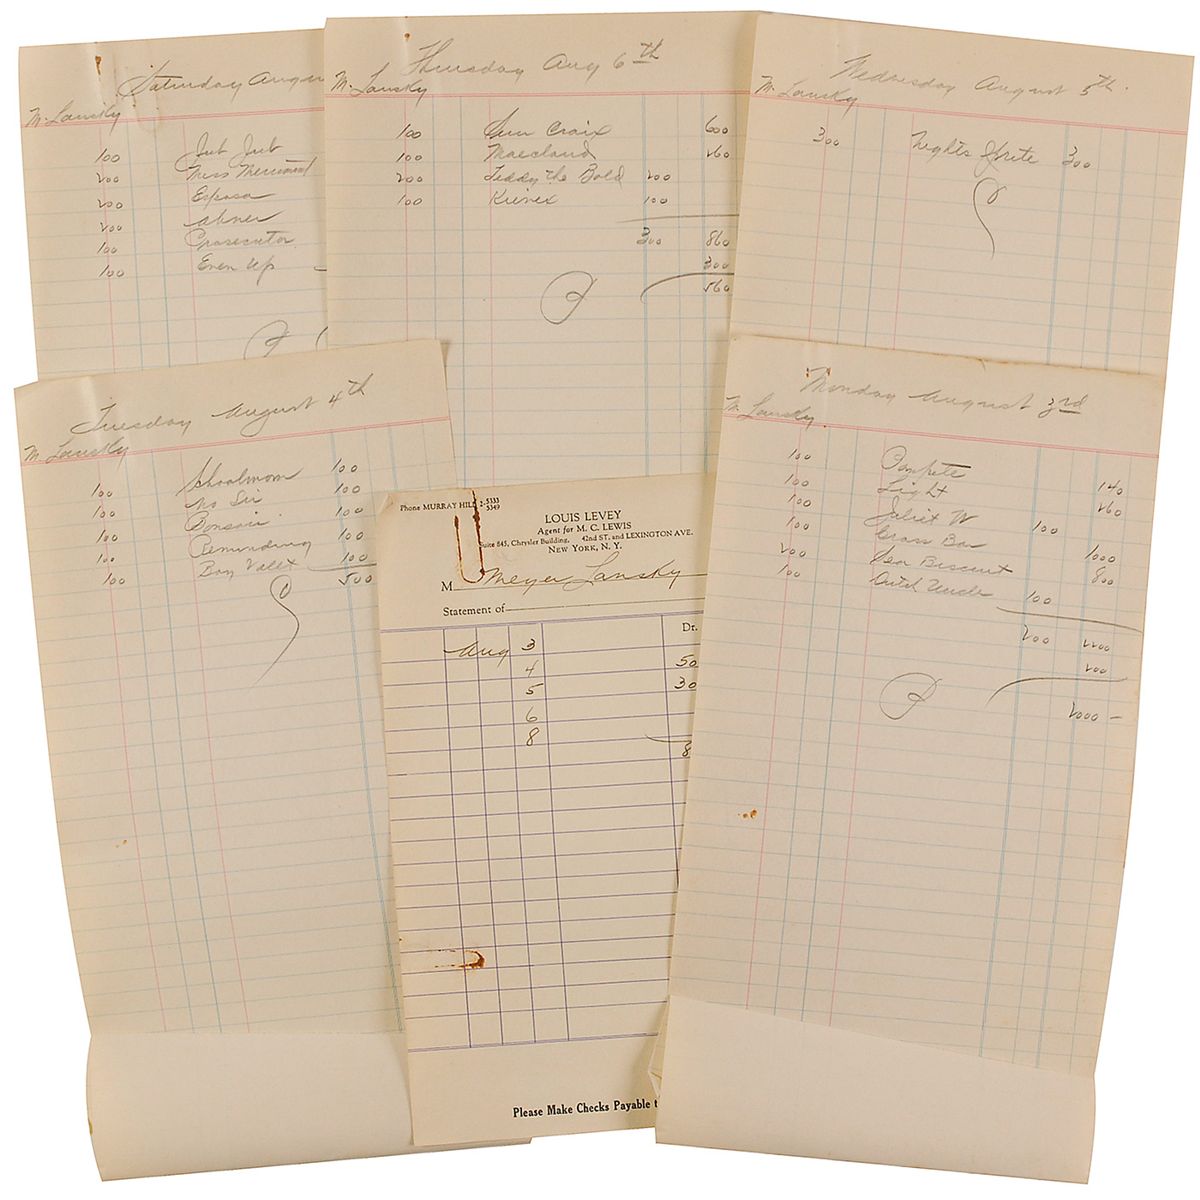 Saturday Augu
M. Lansky
100 Jub Jub
200 Miss Merriment
200 Esposa
200 Abner
100 Prosecutor
100 Even Up
Thursday Aug 6th
M. Lansky
100 Sun Craix 600
100 Maeland 260
200 Teddy the Bold 200
100 Kievex 100
300 860
300
560
Wednesday August 5th.
M. Lansky
300 Nights Sprite 300
Tuesday August 4th
M Lansky
100 Schoolmom 100
100 No Sir 100
100 Bonsoir 100
100 Reminding 100
100 Boy Valet 100
500
Phone MURRAY HILL 2-5333
5349
LOUIS LEVEY
Agent for M. C. LEWIS
Suite 845, Chrysler Building, 42nd ST. and LEXINGTON AVE.
NEW YORK, N. Y.
M Meyer Lansky
Statement of
Dr.
Aug 3
4 50
5 30
6
8
8
Please Make Checks Payable t
Monday August 3rd
M. Lansky
100 Compete 140
100 Light 260
100 Juliet W 100
100 Grass Bar 1000
200 Sea Biscuit 800
100 Dutch Uncle 100
200 2200
200
2000 —